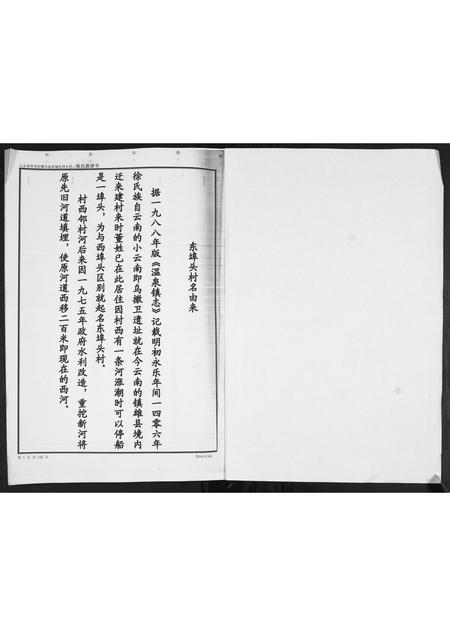 东埠头村名由来
据一九八八年版《温泉镇志》记载明初永乐年间一四零六年
徐氏族自云南的小云南即乌撒卫遗址就在今云南的镇雄县境内
迁来建村来时董姓已在此居住因村西有一条河涨潮时可以停船
是一埠头，为与西埠头区别就起名东埠头村。
村西邻村河后来因一九七五年政府水利改造，重挖新河将
原先旧河道填埋，使原河道西移二百米即现在的西河。